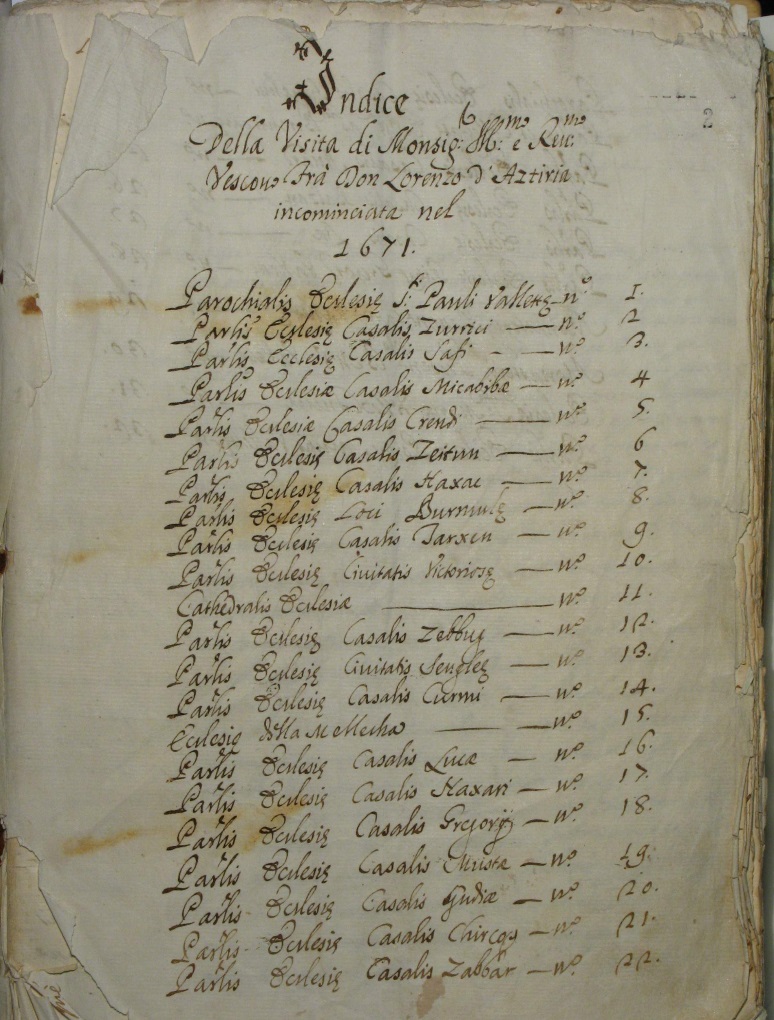 Indice
Della Visita di Monsig.r Ill.mo e Reu.mo
Vescouo Frà Don Lorenzo d'Aztiria
incominciata nel
1671.
2
Parochialis Ecclesię S.ti Pauli Vallettę — n.o 1.
Par̃lis Ecclesię Casalis Zurrici — n.o 2
Par̃lis Ecclesię Casalis Safi - — n.o 3.
Par̃lis Ecclesiæ Casalis Micabibæ — n.o 4
Par̃lis Ecclesiæ Casalis Crendi — n.o 5.
Par̃lis Ecclesię Casalis Zeitun — n.o 6
Par̃lis Ecclesię Casalis Haxac — n.o 7.
Par̃lis Ecclesię Loci Burmulę — n.o 8.
Par̃lis Ecclesię Casalis Tarxen — n.o 9.
Par̃lis Ecclesię Ciuitatis Victoriosę — n.o 10.
Cathedralis Ecclesiæ — n.o 11.
Par̃lis Ecclesię Casalis Zebbug — n.o 12.
Par̃lis Ecclesię Ciuitatis Sengleę — n.o 13.
Par̃lis Ecclesię Casalis Curmi — n.o 14.
Ecclesię della Mellecha — n.o 15.
Par̃lis Ecclesię Casalis Lucæ — n.o 16.
Par̃lis Ecclesię Casalis Haxari — n.o 17.
Par̃lis Ecclesię Casalis Gregorij — n.o 18.
Par̃lis Ecclesię Casalis Mustæ — n.o 19.
Par̃lis Ecclesię Casalis Gudiæ — n.o 20.
Par̃lis Ecclesię Casalis Chircop — n.o 21.
Par̃lis Ecclesię Casalis Zabbar — n.o 22.